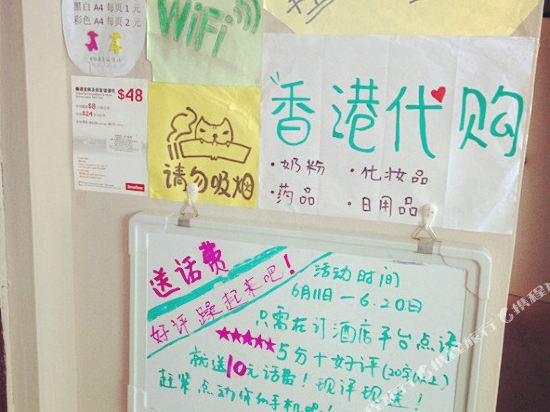 黑白 A4 每页 1 元
彩色 A4 每页 2 元
WiFi
$48
$8
$24
请勿吸烟
香港代购
·奶粉 ·化妆品
·药品 ·日用品
送话费
好评躁起来吧！
活动时间
6月11日—6.20日
只需在订酒店平台点评
★★★★★5分+好评(20字以上)
就送10元话费！现评现送！
赶紧点动你的手机吧！
携程